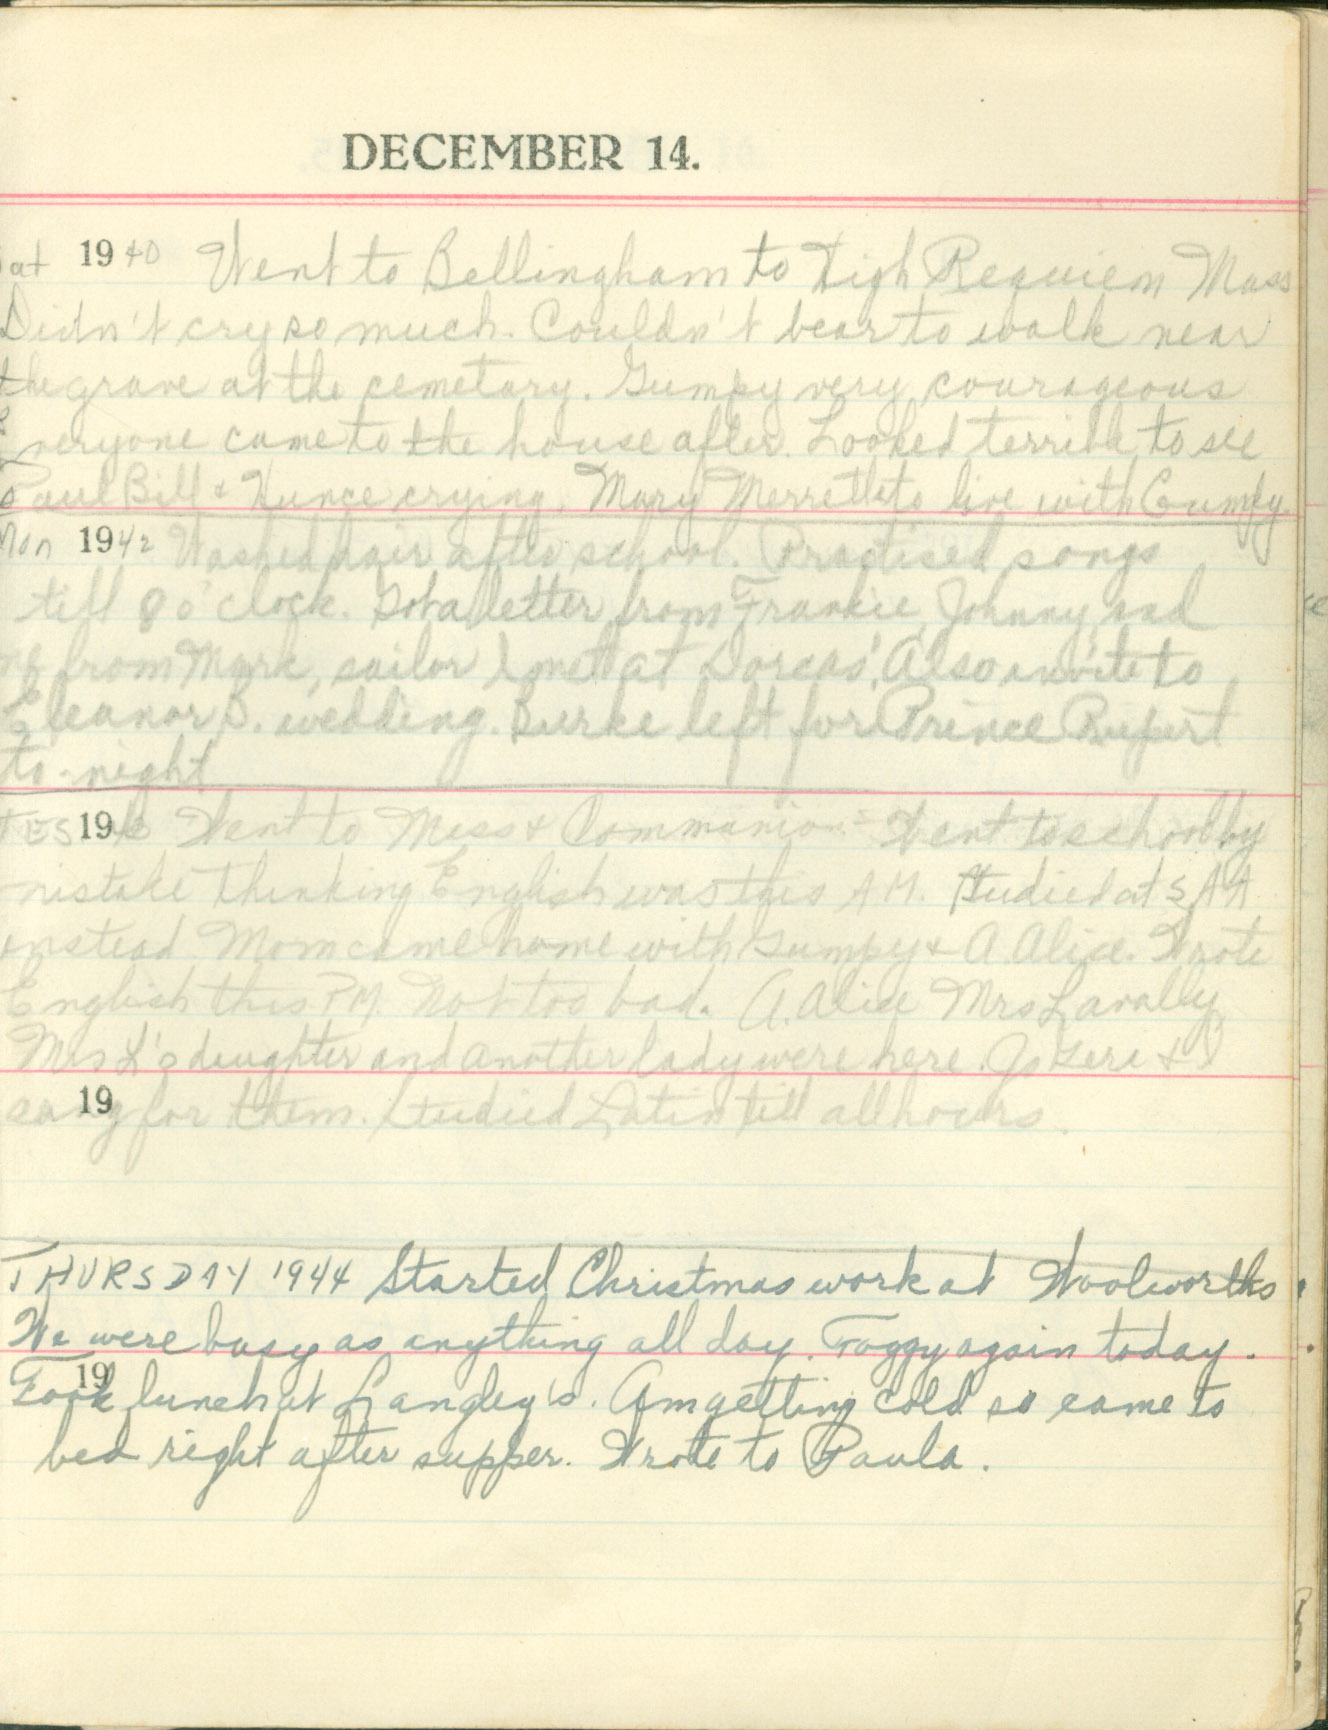 DECEMBER 14.
at 1940 Went to Bellingham to High Requiem Mass
Didn't cry so much. Couldn't bear to walk near
the grave at the cemetary. Gumpy very courageous
Everyone came to the house after. Looked terrible to see
Paul Bill & Hunce crying. Mary Merrett to live with Gumpy
Mon 1942 Washed hair after school. Practised songs
till 8 o'clock. Got a letter from Frankie, Johnny, and
one from Mark, sailor I met at Dorcas'. Also invite to
Eleanor D. wedding. Burke left for Prince Rupert
to-night
TES 19 Went to Mass & Communion - Went to school by
mistake thinking English was this A M. Studied at S A A
instead. Mom came home with Gumpy & A. Alice. Wrote
English this P.M. Not too bad. A. Alice Mrs Lavally
Mrs L's daughter and another lady were here. Jo Gere & I
19
sang for them. Studied Latin till all hours.
THURSDAY 1944 Started Christmas work at Woolworths
We were busy as anything all day. Foggy again today.
19
Took lunch at Langley's. Am getting cold so came to
bed right after supper. Wrote to Paula.